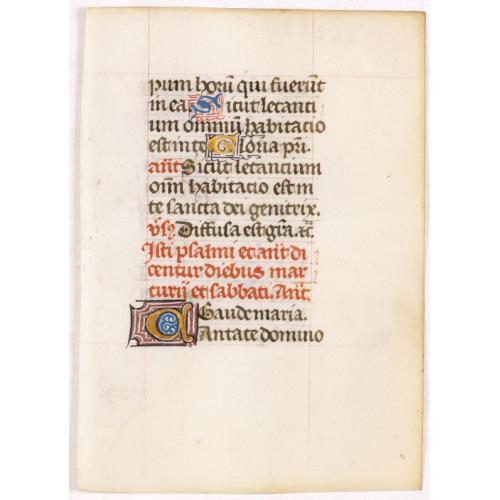 pum horū qui fuerūt
in ea. Sicut letanti
um omniū habitacio
est in te Gloria pri.
añt Sicut letancium
oīm habitacio est in
te sancta dei genitrix.
Diffusa est grā. 
Isti psalmi et añt di
centur diebus mar
turii et sabbati. Añt.
Gaude maria.
Cantate domino